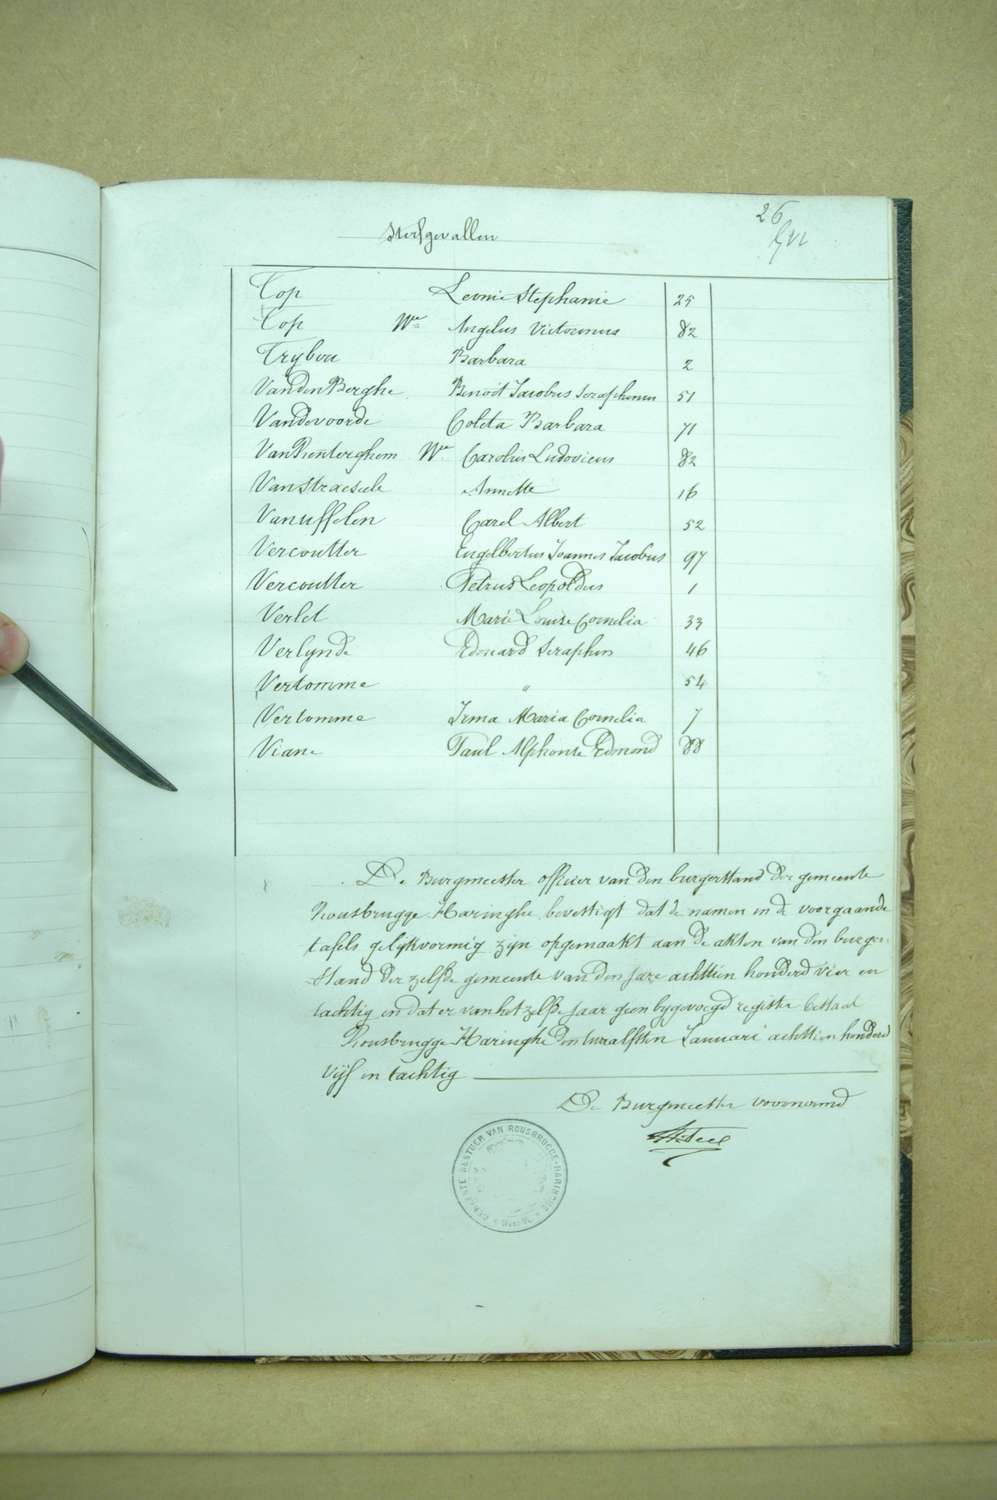 26
Sterfgevallen
Top Leonie Stephanie 25
Top We Angelus Victorinus 82
Trybou Barbara 2
VandenBerghe Benoit Jacobus Seraphinus 51
Vandevoorde Coleta Barbara 71
VanRenterghem We Carolus Ludovicus 82
Vanstraesele Annette 16
Vanuffelen Carel Albert 52
Vercoutter Engelbertus Joannes Jacobus 97
Vercoutter Petrus Leopoldus 1
Verlet Marie Louise Cornelia 33
Verlynde Edouard Seraphin 46
Vertomme " 54
Vertomme Irma Maria Cornelia 7
Viane Paul Alphonse Edmond 88
De Burgmeester officier van den burgerstand der gemeente
Rousbrugge-Haringhe bevestigt dat de namen in de voorgaande
tafels gelijkvormig zijn opgemaakt aan de akten van den burger-
stand der zelfde gemeente van den jare achttien honderd vier en
tachtig en dat er van het zelfde jaar geen bygevoegd register bestaat
Rousbrugge-Haringhe den twaalfsten Januari achttien honderd
vijf en tachtig
De Burgmeester voornoemd
GEMEENTE BESTUUR VAN ROUSBRUGGE-HARINGHE